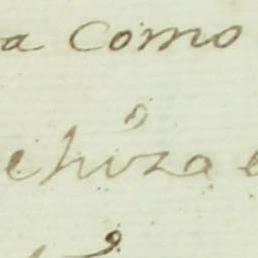 a como
chiza e